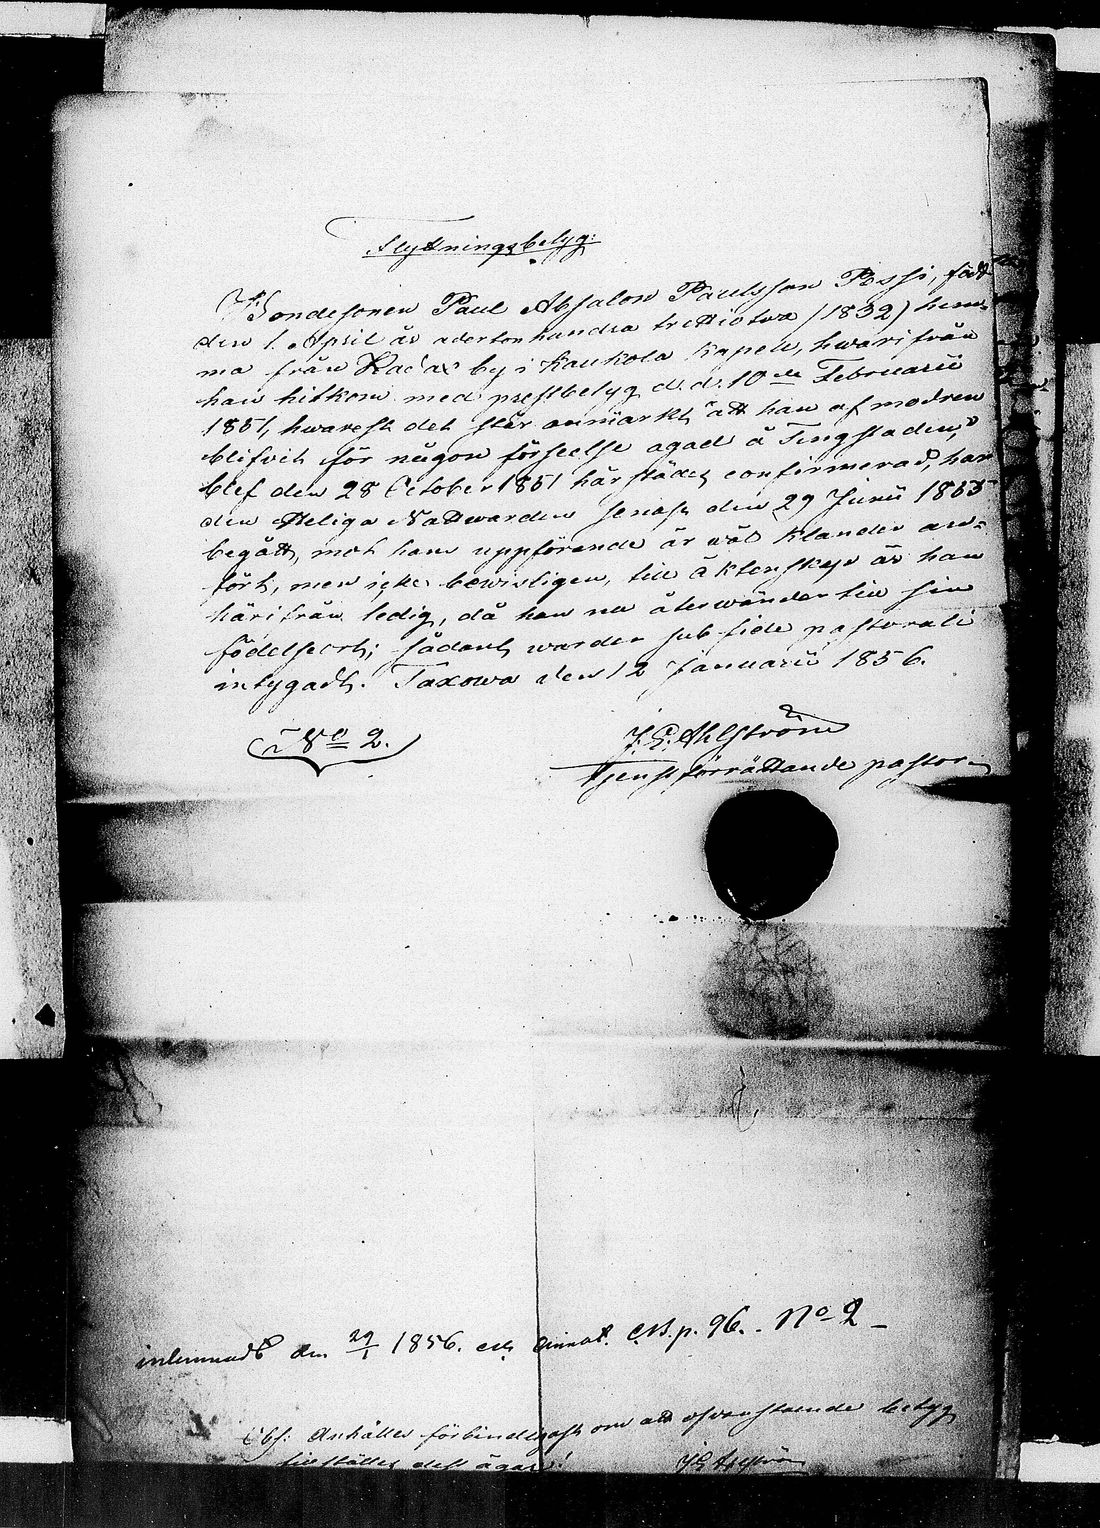 Flyttningsbetyg:
Bondesonen Paul Absalon Paulsson Pessi, född
den 1. April år adertonhundra trettiotvå (1832) hem-
ma från Kadax by i Kaukola Kapell, hvarifrån
han hitkom med prestbetyg d.d. 10de Februarii
1851, hwarest det står anmärkt att han af modren
blifvit för någon förseelse agad å Tingstaden,
blef den 28 October 1851 härstädes confirmerad, har
den Heliga Nattwarden senast den 29 Junii 1855
begått, mot hans uppförande är wäl klander an-
fört, men icke bewisligen, till äktenskap är han
härifrån ledig, då han nu återwänder till sin
födelseort; sådant warder sub fide pastorali
intygadt. Taxowa den 12 Januarii 1856.
No 2.
J. E. Ahlström
Tjenstförrättande pastor
inlemnadt den 29/1 1856. och annot. C.B. p. 96. No 2
Obs: Anhålles förbindligast om att ofvanstående betyg
tillställes dess ägare!
J E Ahlström